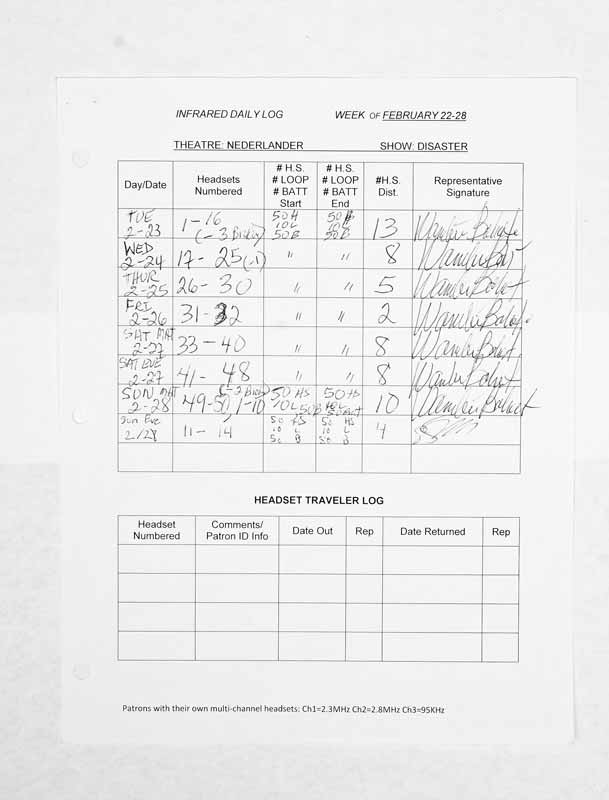 INFRARED DAILY LOG WEEK OF FEBRUARY 22-28
THEATRE: NEDERLANDER SHOW: DISASTER
Day/Date
Headsets
Numbered
# H.S.
# LOOP
# BATT
Start
# H.S.
# LOOP
# BATT
End
#H.S.
Dist.
Representative
Signature
TUE
2-23
1-16
(-3 Broken)
50H
10L
50B
50H
10L
50B
13
WED
2-24
17-25(-1)
"
"
8
THUR
2-25
26-30
"
"
5
FRI
2-26
31-32
"
"
2
SAT MAT
2-27
33-40
"
"
8
SAT EVE
2-27
41-48
"
"
8
SUN MAT
2-28
49-50/1-10
50 HS
10L 50B
50HS
10
Sun Eve
2/28
11-14
50 HS
10 L
50 B
50 HS
10 L
50 B
4
HEADSET TRAVELER LOG
Headset
Numbered
Comments/
Patron ID Info
Date Out
Rep
Date Returned
Rep
Patrons with their own multi-channel headsets: Ch1=2.3MHz Ch2=2.8MHz Ch3=95KHz